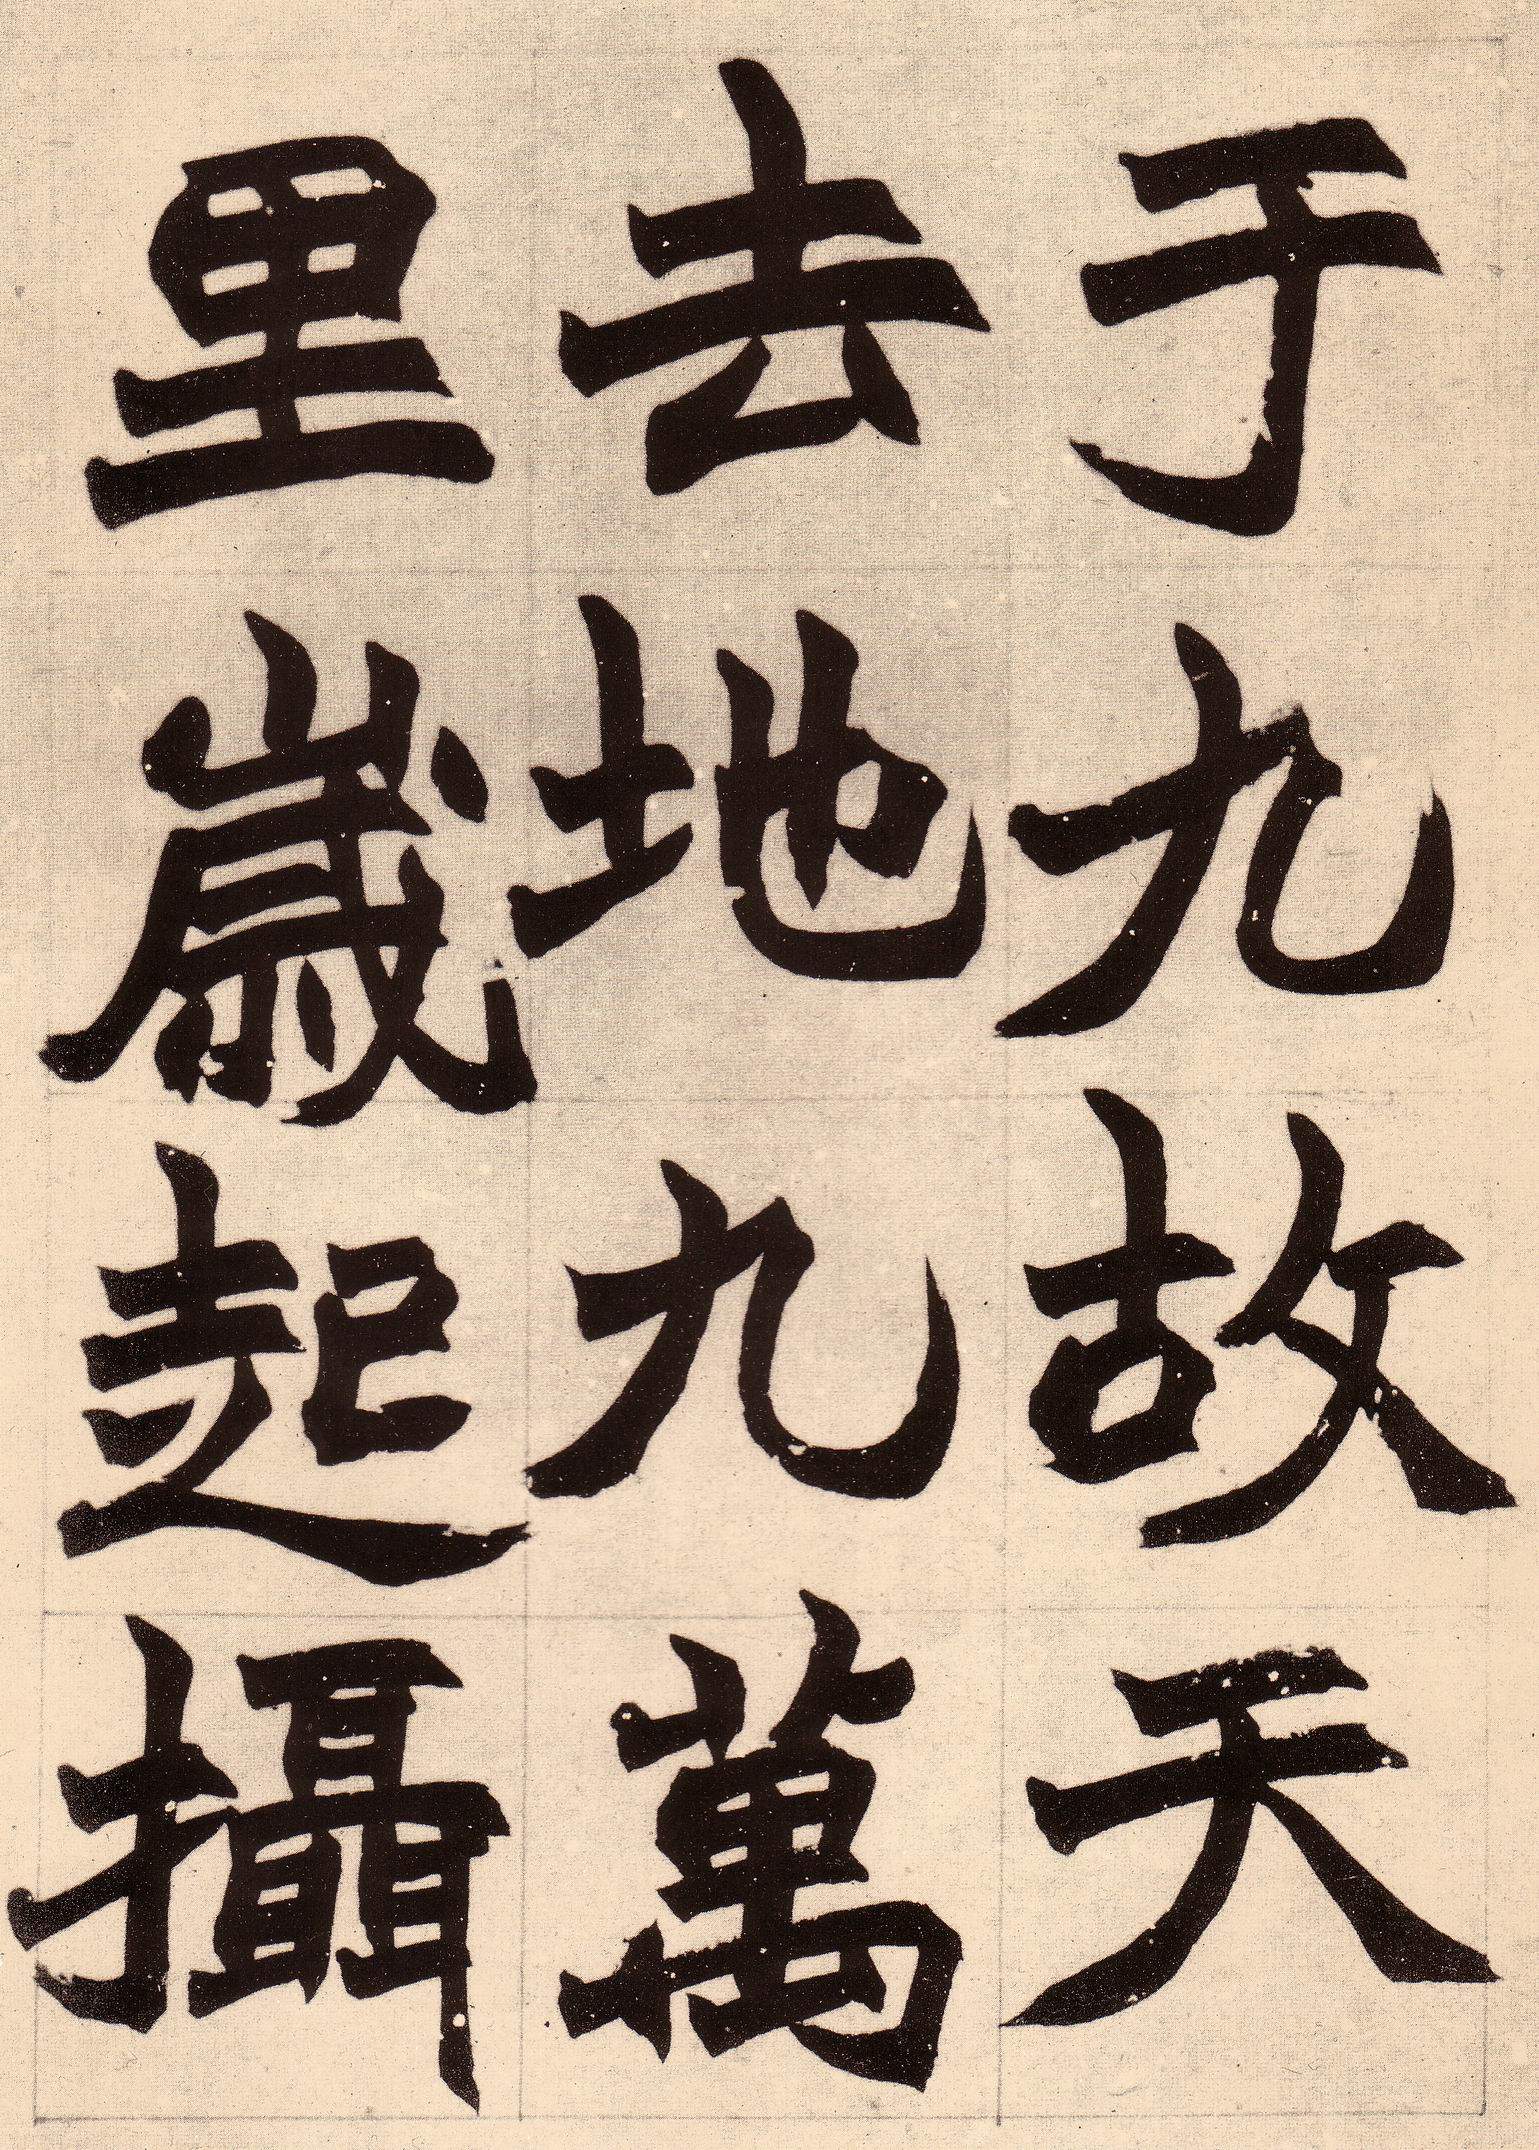 于九故天
去地九萬
里歲起攝